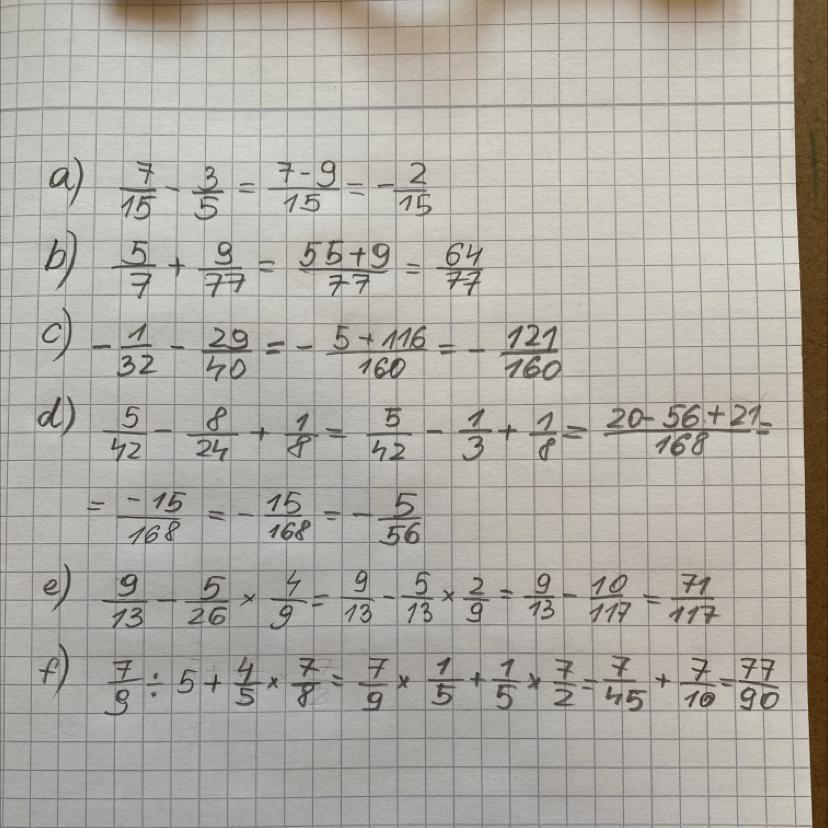 a) 7/15 - 3/5 = 7-9/15 = - 2/15
b) 5/7 + 9/77 = 55+9/77 = 64/77
c) - 1/32 - 29/40 = - 5+116/160 = - 121/160
d) 5/42 - 8/24 + 1/8 = 5/42 - 1/3 + 1/8 = 20-56+21/168 =
= -15/168 = - 15/168 = - 5/56
e) 9/13 - 5/26 × 4/9 = 9/13 - 5/13 × 2/9 = 9/13 - 10/117 = 71/117
f) 7/9 ÷ 5 + 4/5 × 7/8 = 7/9 × 1/5 + 1/5 × 7/2 = 7/45 + 7/10 = 77/90